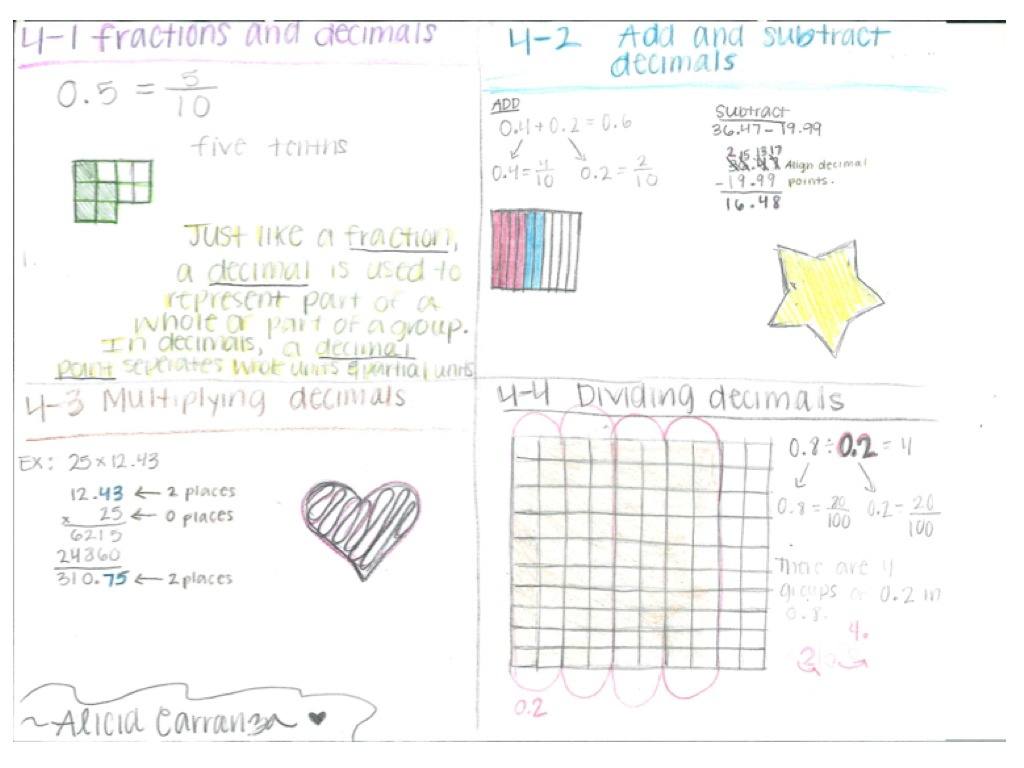 4-1 fractions and decimals
0.5 = 5/10
five tenths
Just like a fraction,
a decimal is used to
represent part of a
whole or part of a group.
In decimals, a decimal
point seperates whole units & partial units
4-2 Add and subtract
decimals
ADD
0.4+0.2=0.6
0.4=4/10 0.2=2/10
Subtract
36.47-19.99
2 15 13 17
36.47 Align decimal
-19.99 points.
16.48
4-3 Multiplying decimals
Ex: 25x12.43
12.43 ← 2 places
x 25 ← 0 places
6215
24860
310.75 ← 2 places
~Alicia Carranza
4-4 Dividing decimals
0.8÷0.2=4
0.8=80/100 0.2=20/100
There are 4
groups of 0.2 in
0.8.
4.
0.2